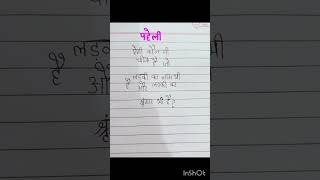 पहेली
ऐसी कौन सी
चीज है जो
लड़की का नाम भी
है और लड़की का
श्रृंगार भी है?
InShOt